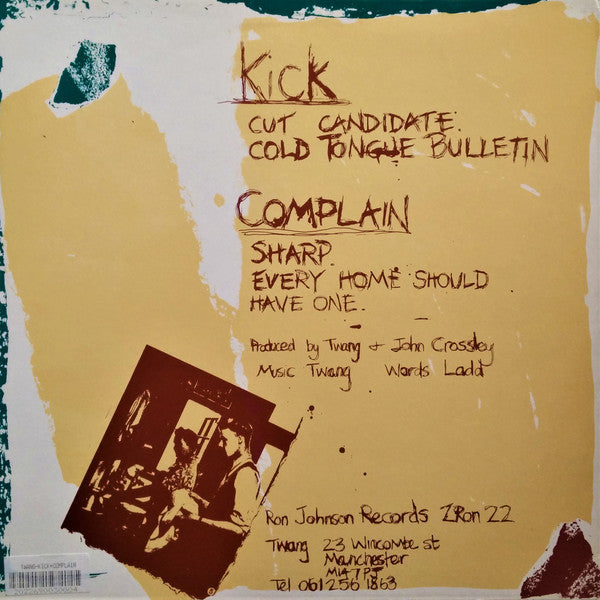 Kick
CUT CANDIDATE.
COLD TONGUE BULLETIN
COMPLAIN
SHARP.
EVERY HOME SHOULD
HAVE ONE.
Produced by Twang + John Crossley
Music Twang Words Ladd
Ron Johnson Records ZRon 22
Twang 23 Wincombe st
Manchester
M14 7PJ
Tel 061 256 1863
TWANG-KICK+COMPLAIN